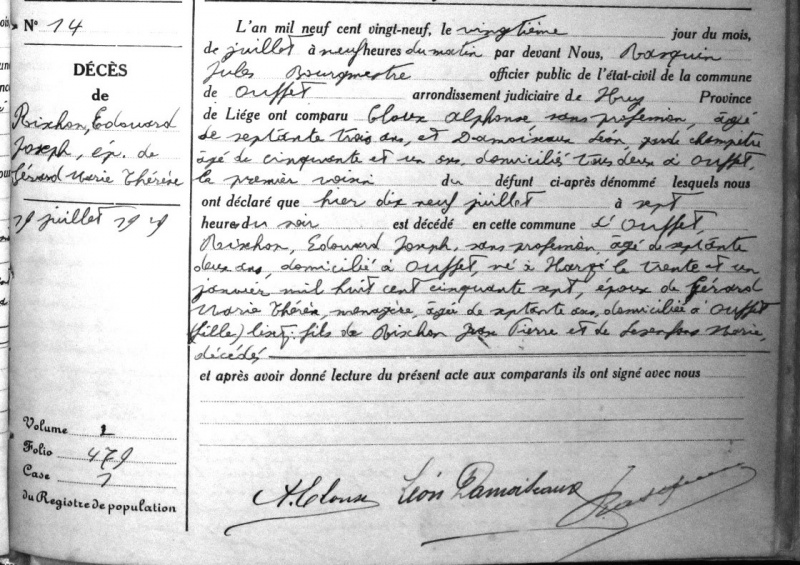 N° 14
DÉCÈS
de
Rixhon, Edouard
Joseph, ép. de
Gérard Marie Thérèse
19 juillet 1929
Volume 1
Folio 479
Case
du Registre de population
L'an mil neuf cent vingt-neuf, le vingtième jour du mois,
de juillet à neuf heures du matin par devant Nous, Rasquin
Jules Bourgmestre officier public de l'état-civil de la commune
de Ouffet arrondissement judiciaire de Huy Province
de Liége ont comparu Cloux Alphonse sans profession, âgé
de septante trois ans, et Damoiseaux Léon, garde champêtre
âgé de cinquante et un ans, domiciliés tous deux à Ouffet,
le premier voisin du défunt ci-après dénommé lesquels nous
ont déclaré que hier dix neuf juillet à sept
heures du soir est décédé en cette commune d'Ouffet,
Rixhon, Edouard Joseph, sans profession, âgé de septante
deux ans, domicilié à Ouffet, né à Harzé le trente et un
janvier mil huit cent cinquante sept, époux de Gérard
Marie Thérèse, menagère, âgée de septante ans, domiciliée à Ouffet
fils de Rixhon Jean Pierre et de Marie,
décédés
et après avoir donné lecture du présent acte aux comparants ils ont signé avec nous
A. Cloux Léon Damoiseaux